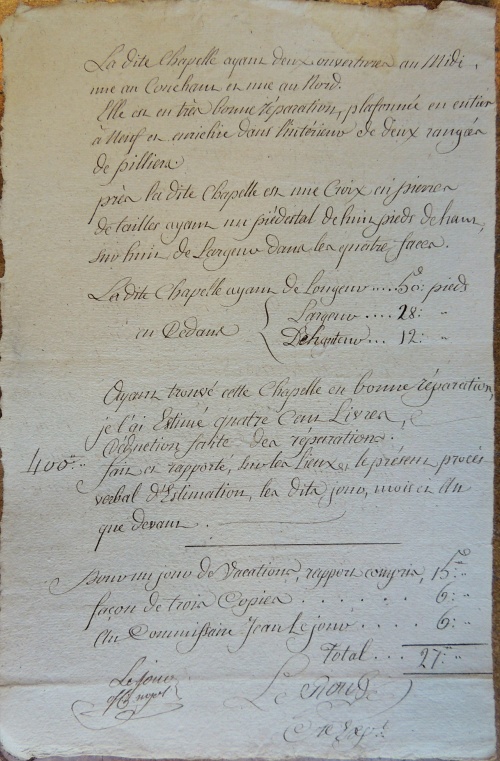 La dite Chapelle ayant deux ouvertures au Midi,
une au Couchant et une au Nord.
Elle est en très bonne réparation, plafonnée en entier
à Neuf et enrichie dans l'intérieur de deux rangées
de pilliers.
près la dite Chapelle est une Croix en pierres
de tailles ayant un piédestal de huit pieds de haut,
sur huit de Largeur dans les quatre faces.
La dite Chapelle ayant de Longeur ..... 50: pieds
Largeur .... 28: "
en Dedans
De hauteur ... 12: "
Ayant trouvé cette Chapelle en bonne réparation,
je l'ai Estimé quatre Cent Livres,
Déduction faite des réparations.
400 "
fait et rapporté, sur les Lieux, le présent procès
verbal d'Estimation, les dits jour, mois et An
que devant.
pour un jour de Vacations, rapport compris, 15: "
façon de trois Copies . . . . . . 6: "
Au Commissaire Jean Le jour . . . . 6: "
Total ... 27: "
Le jour